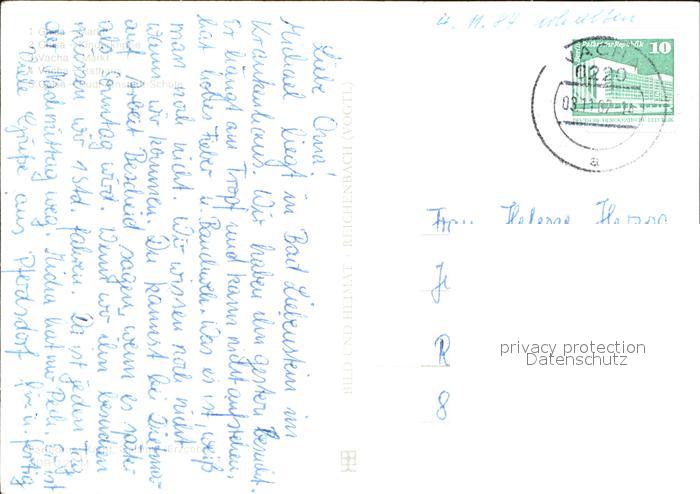 4. 11. 87 erhalten
Liebe Oma!
Michael liegt in Bad Liebenstein im
Krankenhaus. Wir haben ihn gestern besucht.
Er hängt am Tropf und kann nicht aufstehen,
hat hohes Fieber u. Bauchweh. Was es ist, weiß
man noch nicht. Wir wissen noch nicht
wann wir kommen. Du kannst bei
auf Arbeit Bescheid sagen, wenn es später
als Sonntag wird. Wenn wir ihn besuchen
müssen wir 1 Std. fahren. Da ist jeden Tag
der Nachmittag weg. Micha hat nur Pech. Er ist
fix u. fertig
Viele Grüße aus Pferdsdorf
Vacha - Markt
BILD UND HEIMAT · REICHENBACH (VOGTL)
Palast der Republik 10
DEUTSCHE DEMOKRATISCHE REPUBLIK
VACHA
6220
a
Frau Helene Herzog
J
R
8
privacy protection
Datenschutz